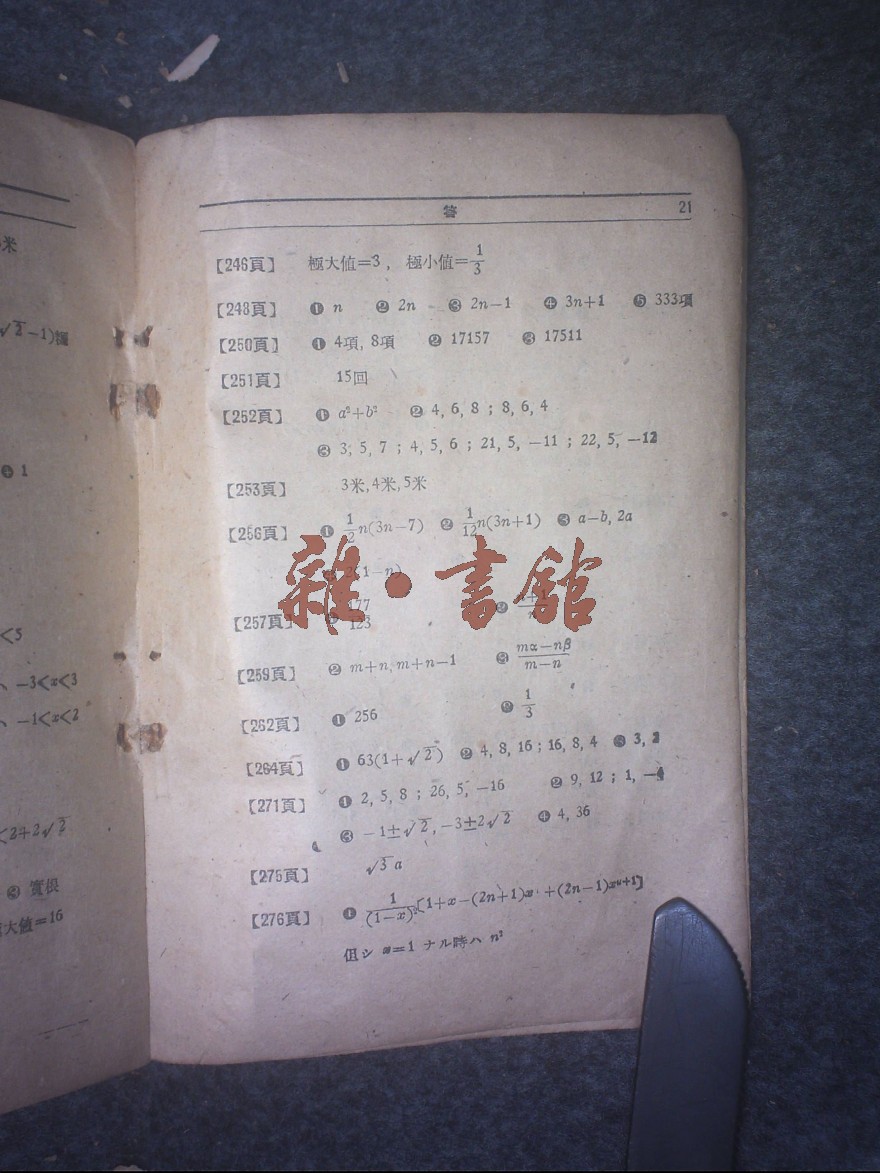 米
√2−1)種
❹ 1
<5
、 −3<x<3
、 −1<x<2
<2+2√2
❷ 實根
大値=16
答 21
【246頁】 極大値=3, 極小値=1/3
【248頁】 ❶ n ❷ 2n ❸ 2n−1 ❹ 3n+1 ❺ 333項
【250頁】 ❶ 4項, 8項 ❷ 17157 ❸ 17511
【251頁】 15回
【252頁】 ❶ a²+b² ❷ 4, 6, 8 ; 8, 6, 4
❸ 3, 5, 7 ; 4, 5, 6 ; 21, 5, −11 ; 22, 5, −12
【253頁】 3米, 4米, 5米
【256頁】 ❶ 1/2 n(3n−7) ❷ 1/12 n(3n+1) ❸ a−b, 2a
(1−n)
【257頁】 177/123 ❷
雜·書館
【259頁】 ❷ m+n, m+n−1 ❸ (mα−nβ)/(m−n)
【262頁】 ❶ 256 ❷ 1/3
【264頁】 ❶ 63(1+√2) ❷ 4, 8, 16 ; 16, 8, 4 ❸ 3, 2
【271頁】 ❶ 2, 5, 8 ; 26, 5, −16 ❷ 9, 12 ; 1, −4
❸ −1±√2, −3±2√2 ❹ 4, 36
【275頁】 √3 a
【276頁】 ❶ 1/(1−x)² [1+x−(2n+1)xⁿ+(2n−1)xⁿ⁺¹]
但シ x=1 ナル時ハ n²